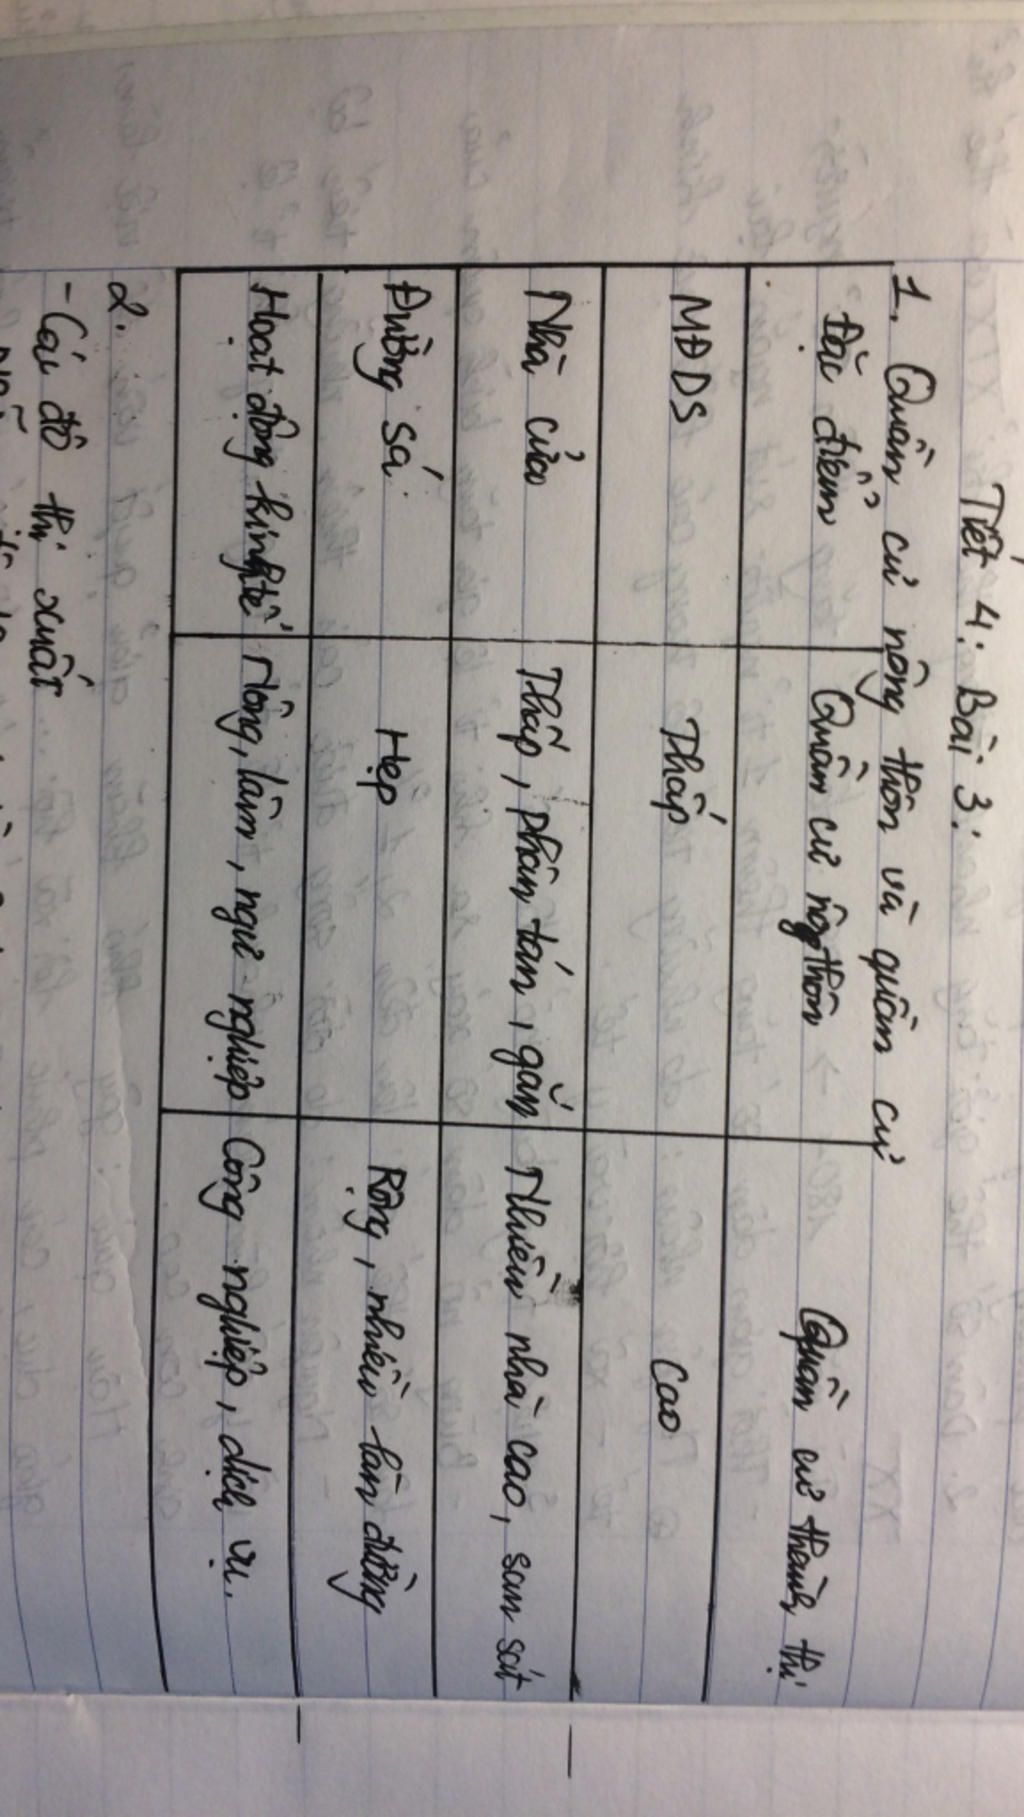 Tiết 4: Bài 3:
1. Quần cư nông thôn và quần cư
Đặc điểm Quần cư nông thôn Quần cư thành thị
MĐDS Thấp Cao
Nhà cửa Thấp, phân tán, gần Nhiều nhà cao, san sát
Đường sá Hẹp Rộng, nhiều làn đường
Hoạt động kinh tế Nông, lâm, ngư nghiệp Công nghiệp, dịch vụ.
2.
- Các đô thị xuất